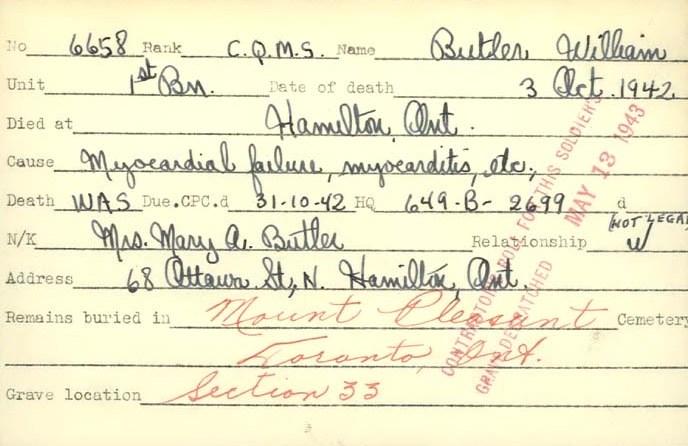 No 6658 Rank C.Q.M.S. Name Butler William
Unit 1st Bn. Date of death 3 Oct. 1942
Died at Hamilton, Ont.
Cause Myocardial failure, myocarditis, etc.,
Death WAS Due.CPC.d 31-10-42 HQ 649-B-2699 d
(NOT LEGAL
N/K Mrs. Mary A. Butler Relationship W
Address 68 Ottawa St, N. Hamilton, Ont.
Remains buried in Mount Pleasant Cemetery
Toronto, Ont.
Grave location Section 33
FOR THIS SOLDIER'S
MAY 13 1943